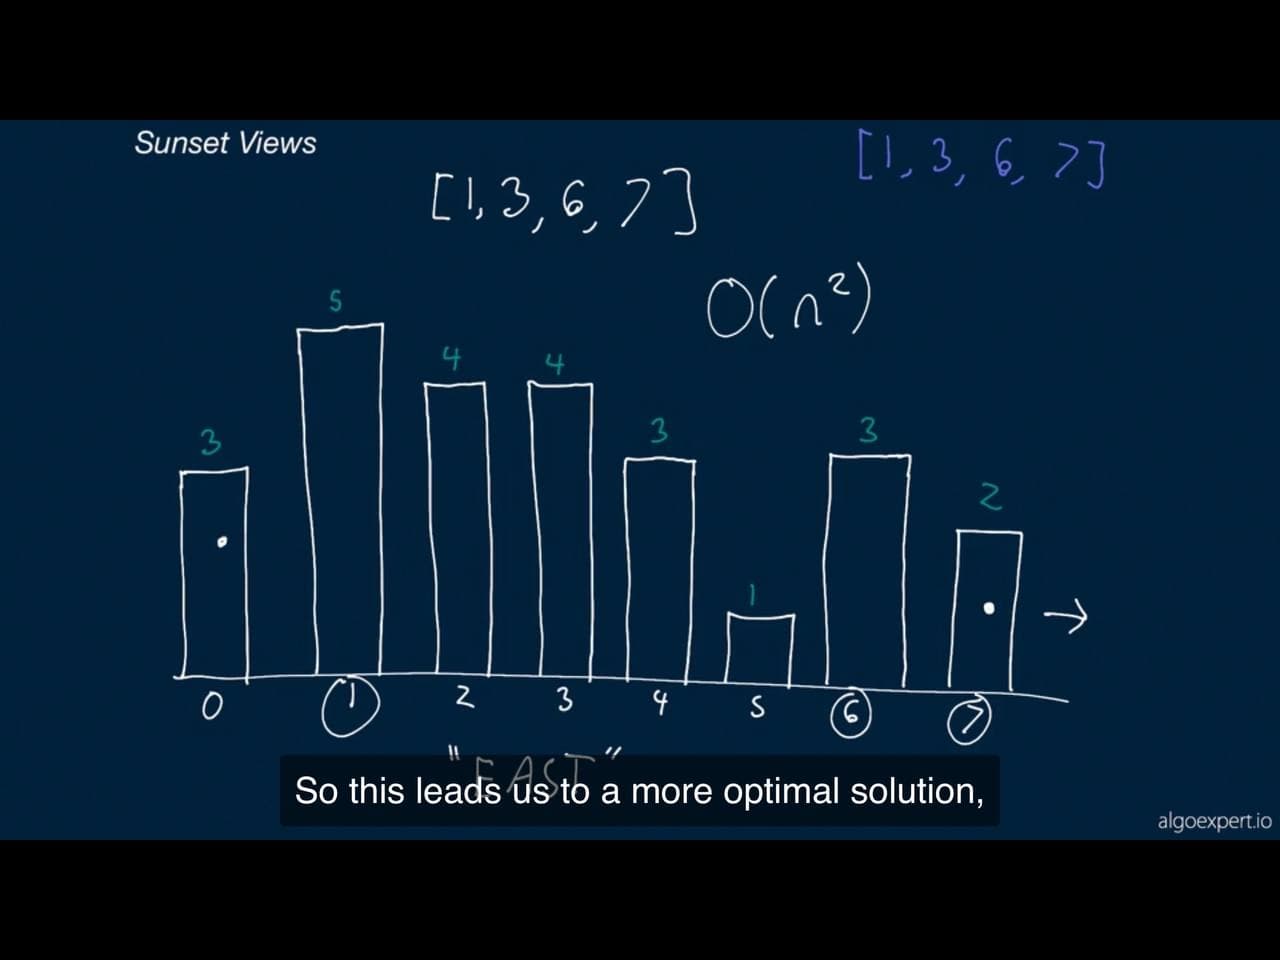 Sunset Views
[1, 3, 6, 7]
[1, 3, 6, 7]
O(n²)
5
4 4
3 3 3
2
1
0 1 2 3 4 5 6 7
"EAST"
So this leads us to a more optimal solution,
algoexpert.io